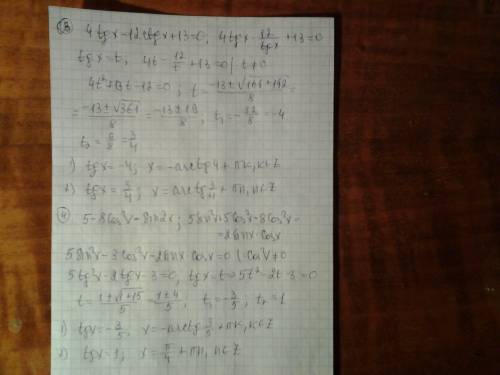 ③ 4tgx-12ctgx+13=0; 4tgx-12/tgx+13=0
tgx=t, 4t-12/t+13=0 | t≠0
4t²+13t-12=0; t=(-13±√(169+192))/8=
=(-13±√361)/8=(-13±19)/8; t₁=-32/8=-4
t₂=6/8=3/4
1) tgx=-4; x=-arctg4+πk, k∈Z
2) tgx=3/4; x=arctg3/4+πn, n∈Z
④ 5-8cos²x=sin2x; 5sin²x+5cos²x-8cos²x=
=2sinx·cosx
5sin²x-3cos²x-2sinx·cosx=0 |:cos²x≠0
5tg²x-2tgx-3=0, tgx=t⇒5t²-2t-3=0
t=(1±√(1+15))/5=(1±4)/5; t₁=-3/5; t₂=1
1) tgx=-3/5; x=-arctg3/5+πk, k∈Z
2) tgx=1; x=π/4+πn, n∈Z